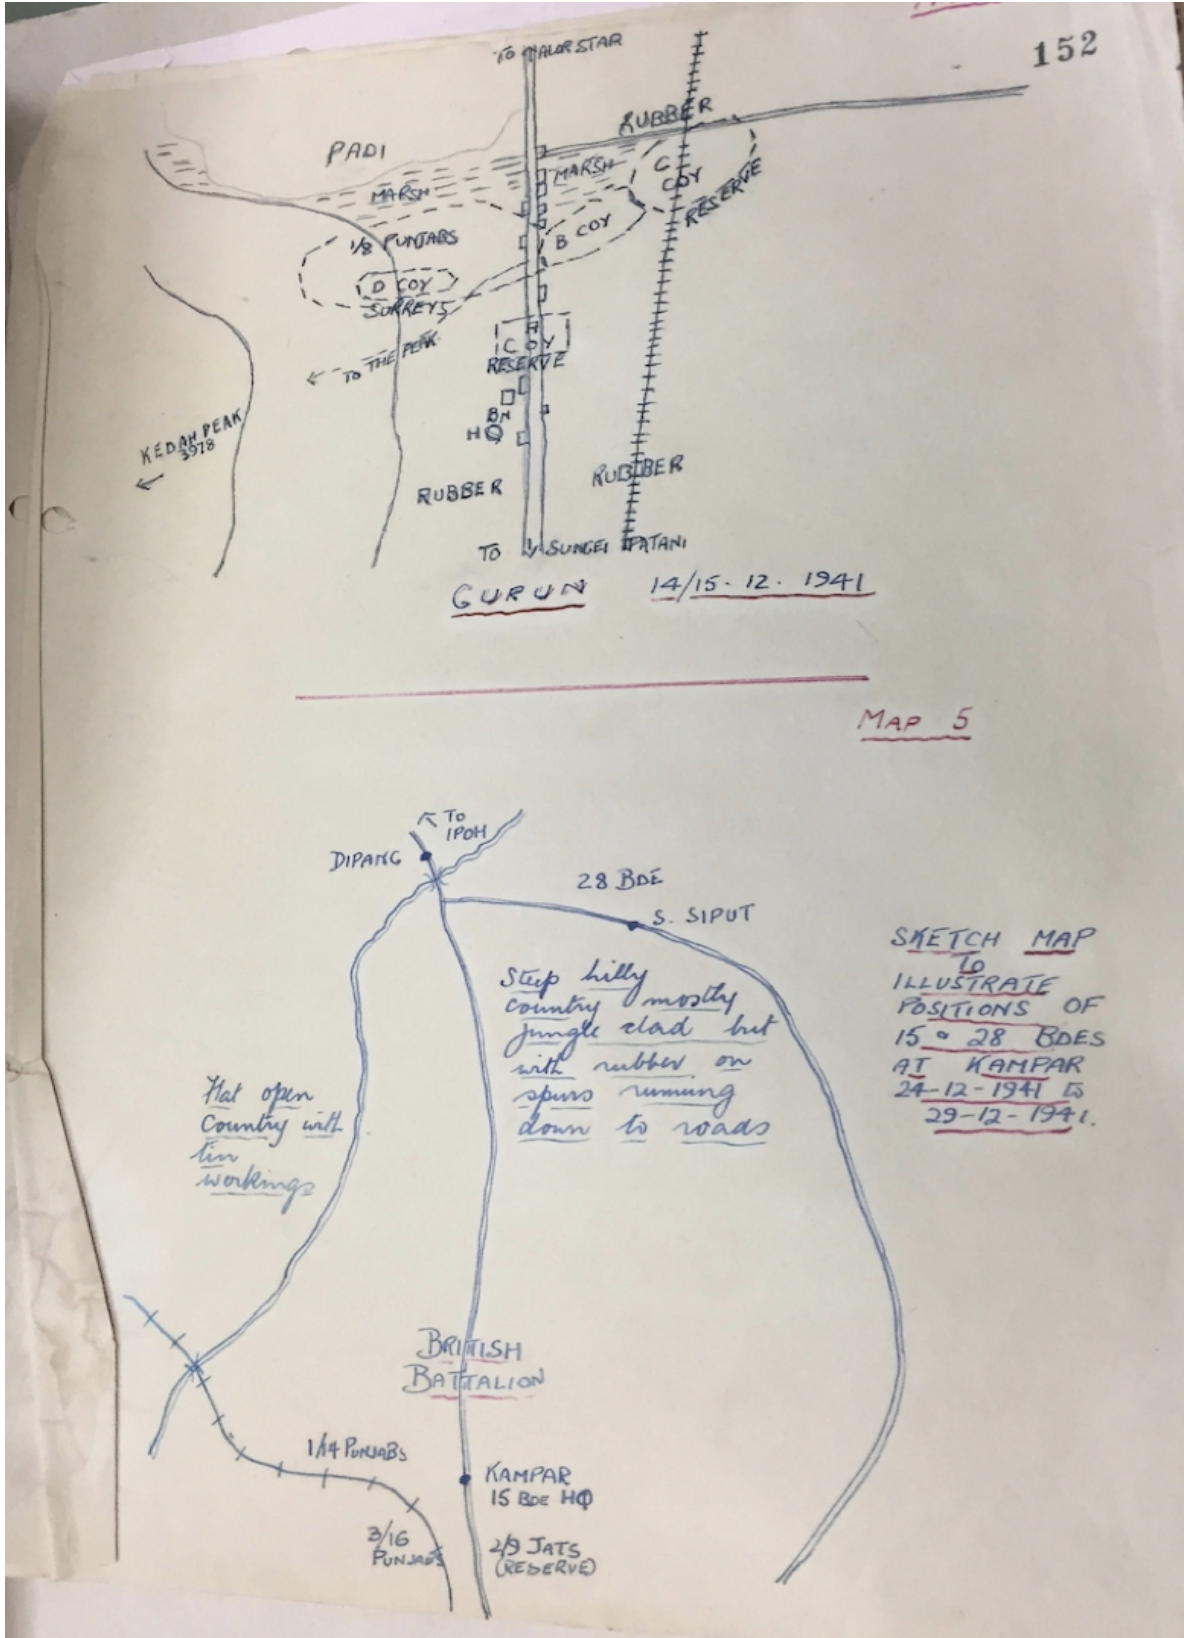 152
TO ALOR STAR
RUBBER
PADI
MARSH
MARSH
C
COY
RESERVE
1/8 PUNJABS
B COY
D COY
SURREYS
A
COY
RESERVE
← TO THE PEAK
BN
HQ
KEDAH PEAK
3978
RUBBER
RUBBER
TO SUNGEI PATANI
GURUN 14/15-12-1941
MAP 5
TO
IPOH
DIPANG
28 BDE
S. SIPUT
SKETCH MAP
TO
ILLUSTRATE
POSITIONS OF
15 & 28 BDES
AT KAMPAR
24-12-1941 to
29-12-1941.
Steep hilly
country mostly
jungle clad but
with rubber on
spurs running
down to roads
Flat open
Country with
tin
workings
BRITISH
BATTALION
1/14 PUNJABS
KAMPAR
15 BDE HQ
3/16
PUNJABS
2/9 JATS
(RESERVE)